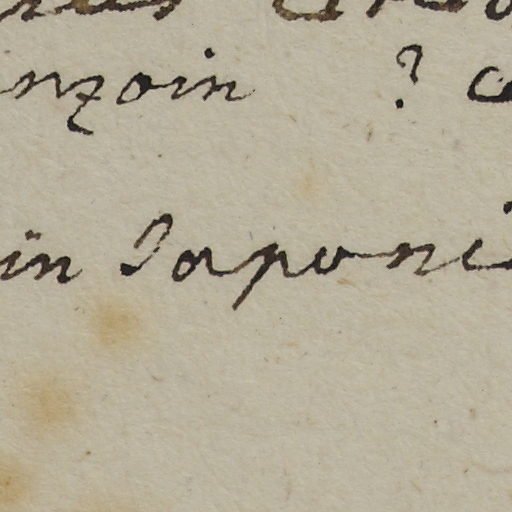 nzoin ? c
in Japoni